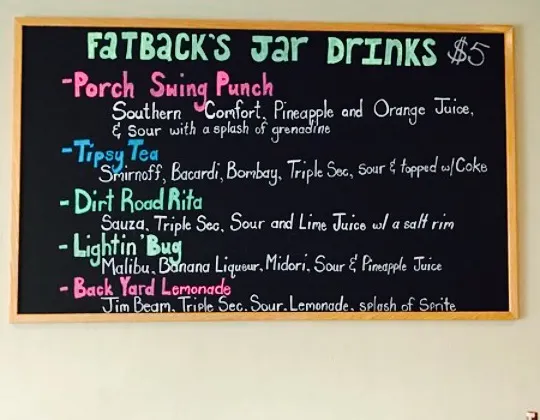 Fatback's Jar Drinks $5
- Porch Swing Punch
Southern Comfort, Pineapple and Orange Juice,
& Sour with a splash of grenadine
- Tipsy Tea
Smirnoff, Bacardi, Bombay, Triple Sec, sour & topped w/Coke
- Dirt Road Rita
Sauza, Triple Sec, Sour and Lime Juice w/ a salt rim
- Lightin' Bug
Malibu, Banana Liqueur, Midori, Sour & Pineapple Juice
- Back Yard Lemonade
Jim Beam, Triple Sec, Sour, Lemonade, splash of Sprite